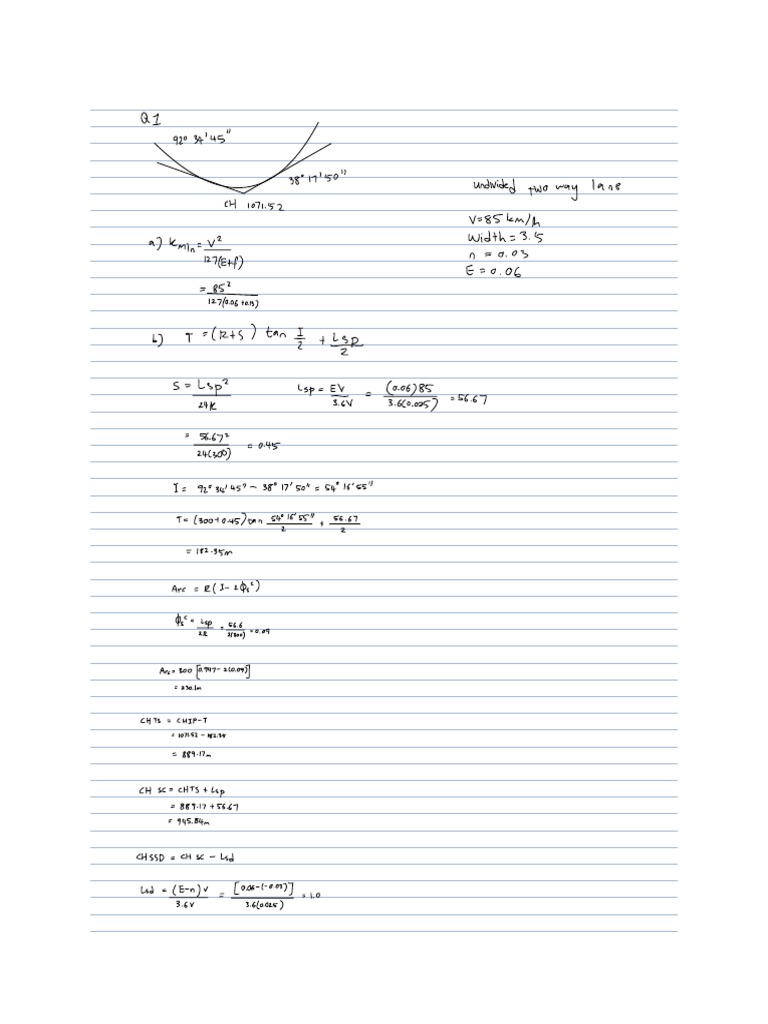 Q1
92° 34' 45"
38° 17' 50"
CH 1071.52
undivided two way lane
V=85 km/h
Width = 3.5
n = 0.03
E = 0.06
a) Rmin = V² / 127(E+f)
= 85² / 127(0.06+0.13)
b) T = (R+S) tan I/2 + Lsp/2
S = Lsp² / 24R
Lsp = EV / 3.6V = (0.06)85 / 3.6(0.025) = 56.67
= 56.67² / 24(300) = 0.45
I = 92° 34' 45" - 38° 17' 50" = 54° 16' 55"
T = (300+0.45) tan 54° 16' 55" / 2 + 56.67 / 2
= 182.35m
Arc = R(I - 2ϕsᶜ)
ϕsᶜ = Lsp / 2R = 56.6 / 2(300) = 0.09
Arc = 300 [0.947 - 2(0.09)]
= 230.1m
CHTS = CHIP-T
= 1071.52 - 182.34
= 889.17m
CH SC = CHTS + Lsp
= 889.17 + 56.67
= 945.84m
CHSSD = CH SC - Lsd
Lsd = (E-n)v / 3.6V = [0.06-(-0.03)] / 3.6(0.025) = 1.0